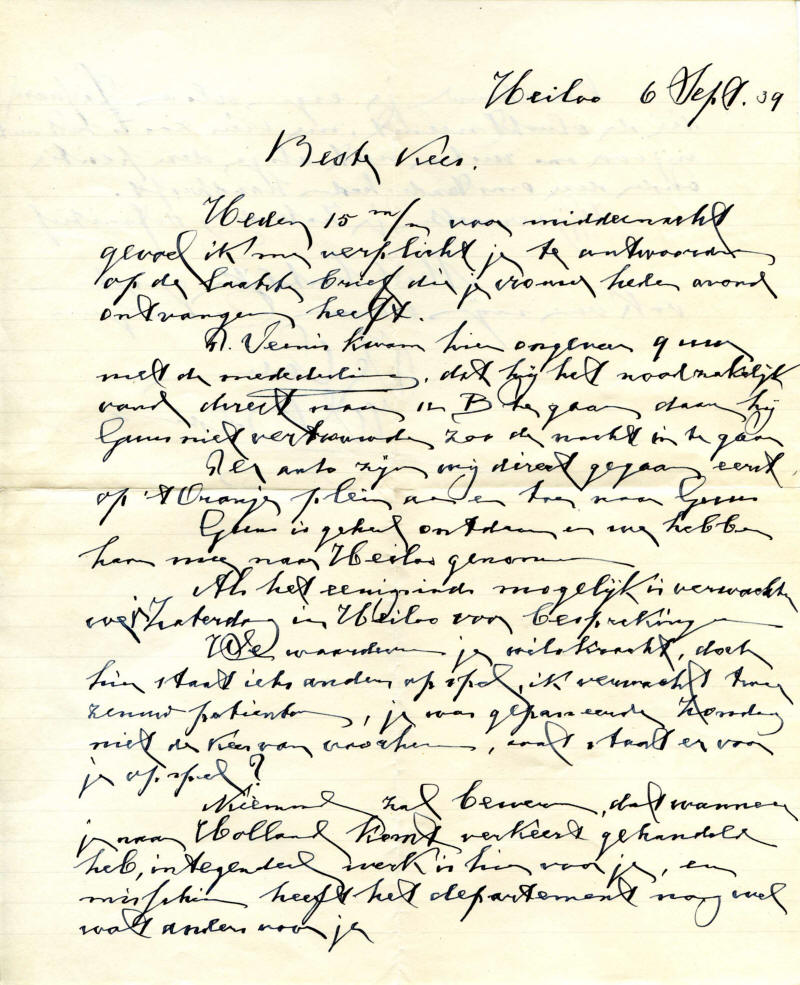 Heiloo 6 Sept. 39
Beste Kees.
Heden 15 m/n voor middernacht
gevoel ik me verplicht je te antwoorden
op de laatste brief die je vrouw heden avond
ontvangen heeft.
P. Vennis kwam hier ongeveer 9 uur
met de mededeling, dat hij het noodzakelijk
vond direct naar B te gaan daar hij
Guus niet vertrouwde zoo de nacht in te gaan
Per auto zijn wij direct gegaan eerst
op 't Oranje plein aan en toen naar Guus
Guus is geheel ontdaan en we hebben
haar mee naar Heiloo genomen
Als het eenigzinds mogelijk is verwachten
we je Zaterdag in Heiloo voor besprekingen
We waarderen je wilskracht, doch
hier staat iets anders op spel, ik verwacht twee
zenuwpatienten, je was gepasseerde Zondag
niet de Kees van voorheen, wat staat er voor
je op spel?
Niemand zal beweren, dat wanneer
je naar Holland komt verkeert gehandeld
heb, integendeel werk is hier voor je, en
misschien heeft het departement nog wel
wat anders voor je